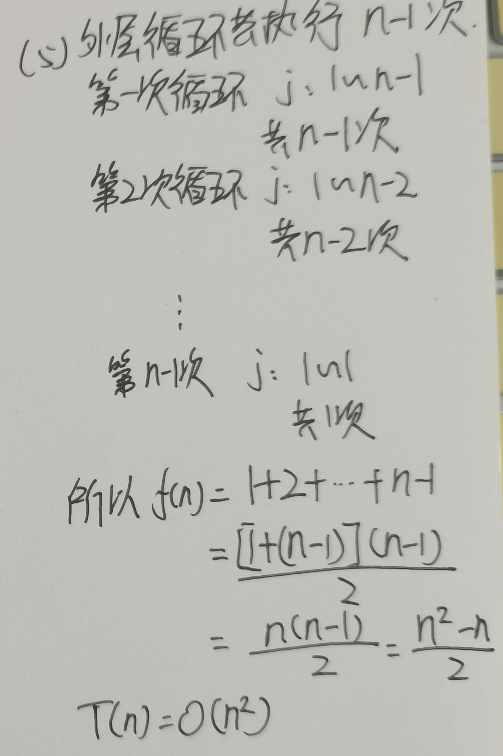 (5) 外层循环共执行 n-1次.
第一次循环 j: 1~n-1
共n-1次
第2次循环 j: 1~n-2
共n-2次
⋮
第n-1次 j: 1~1
共1次
所以 f(n) = 1+2+…+n-1
= [1+(n-1)](n-1) / 2
= n(n-1) / 2 = n²-n / 2
T(n)=O(n²)